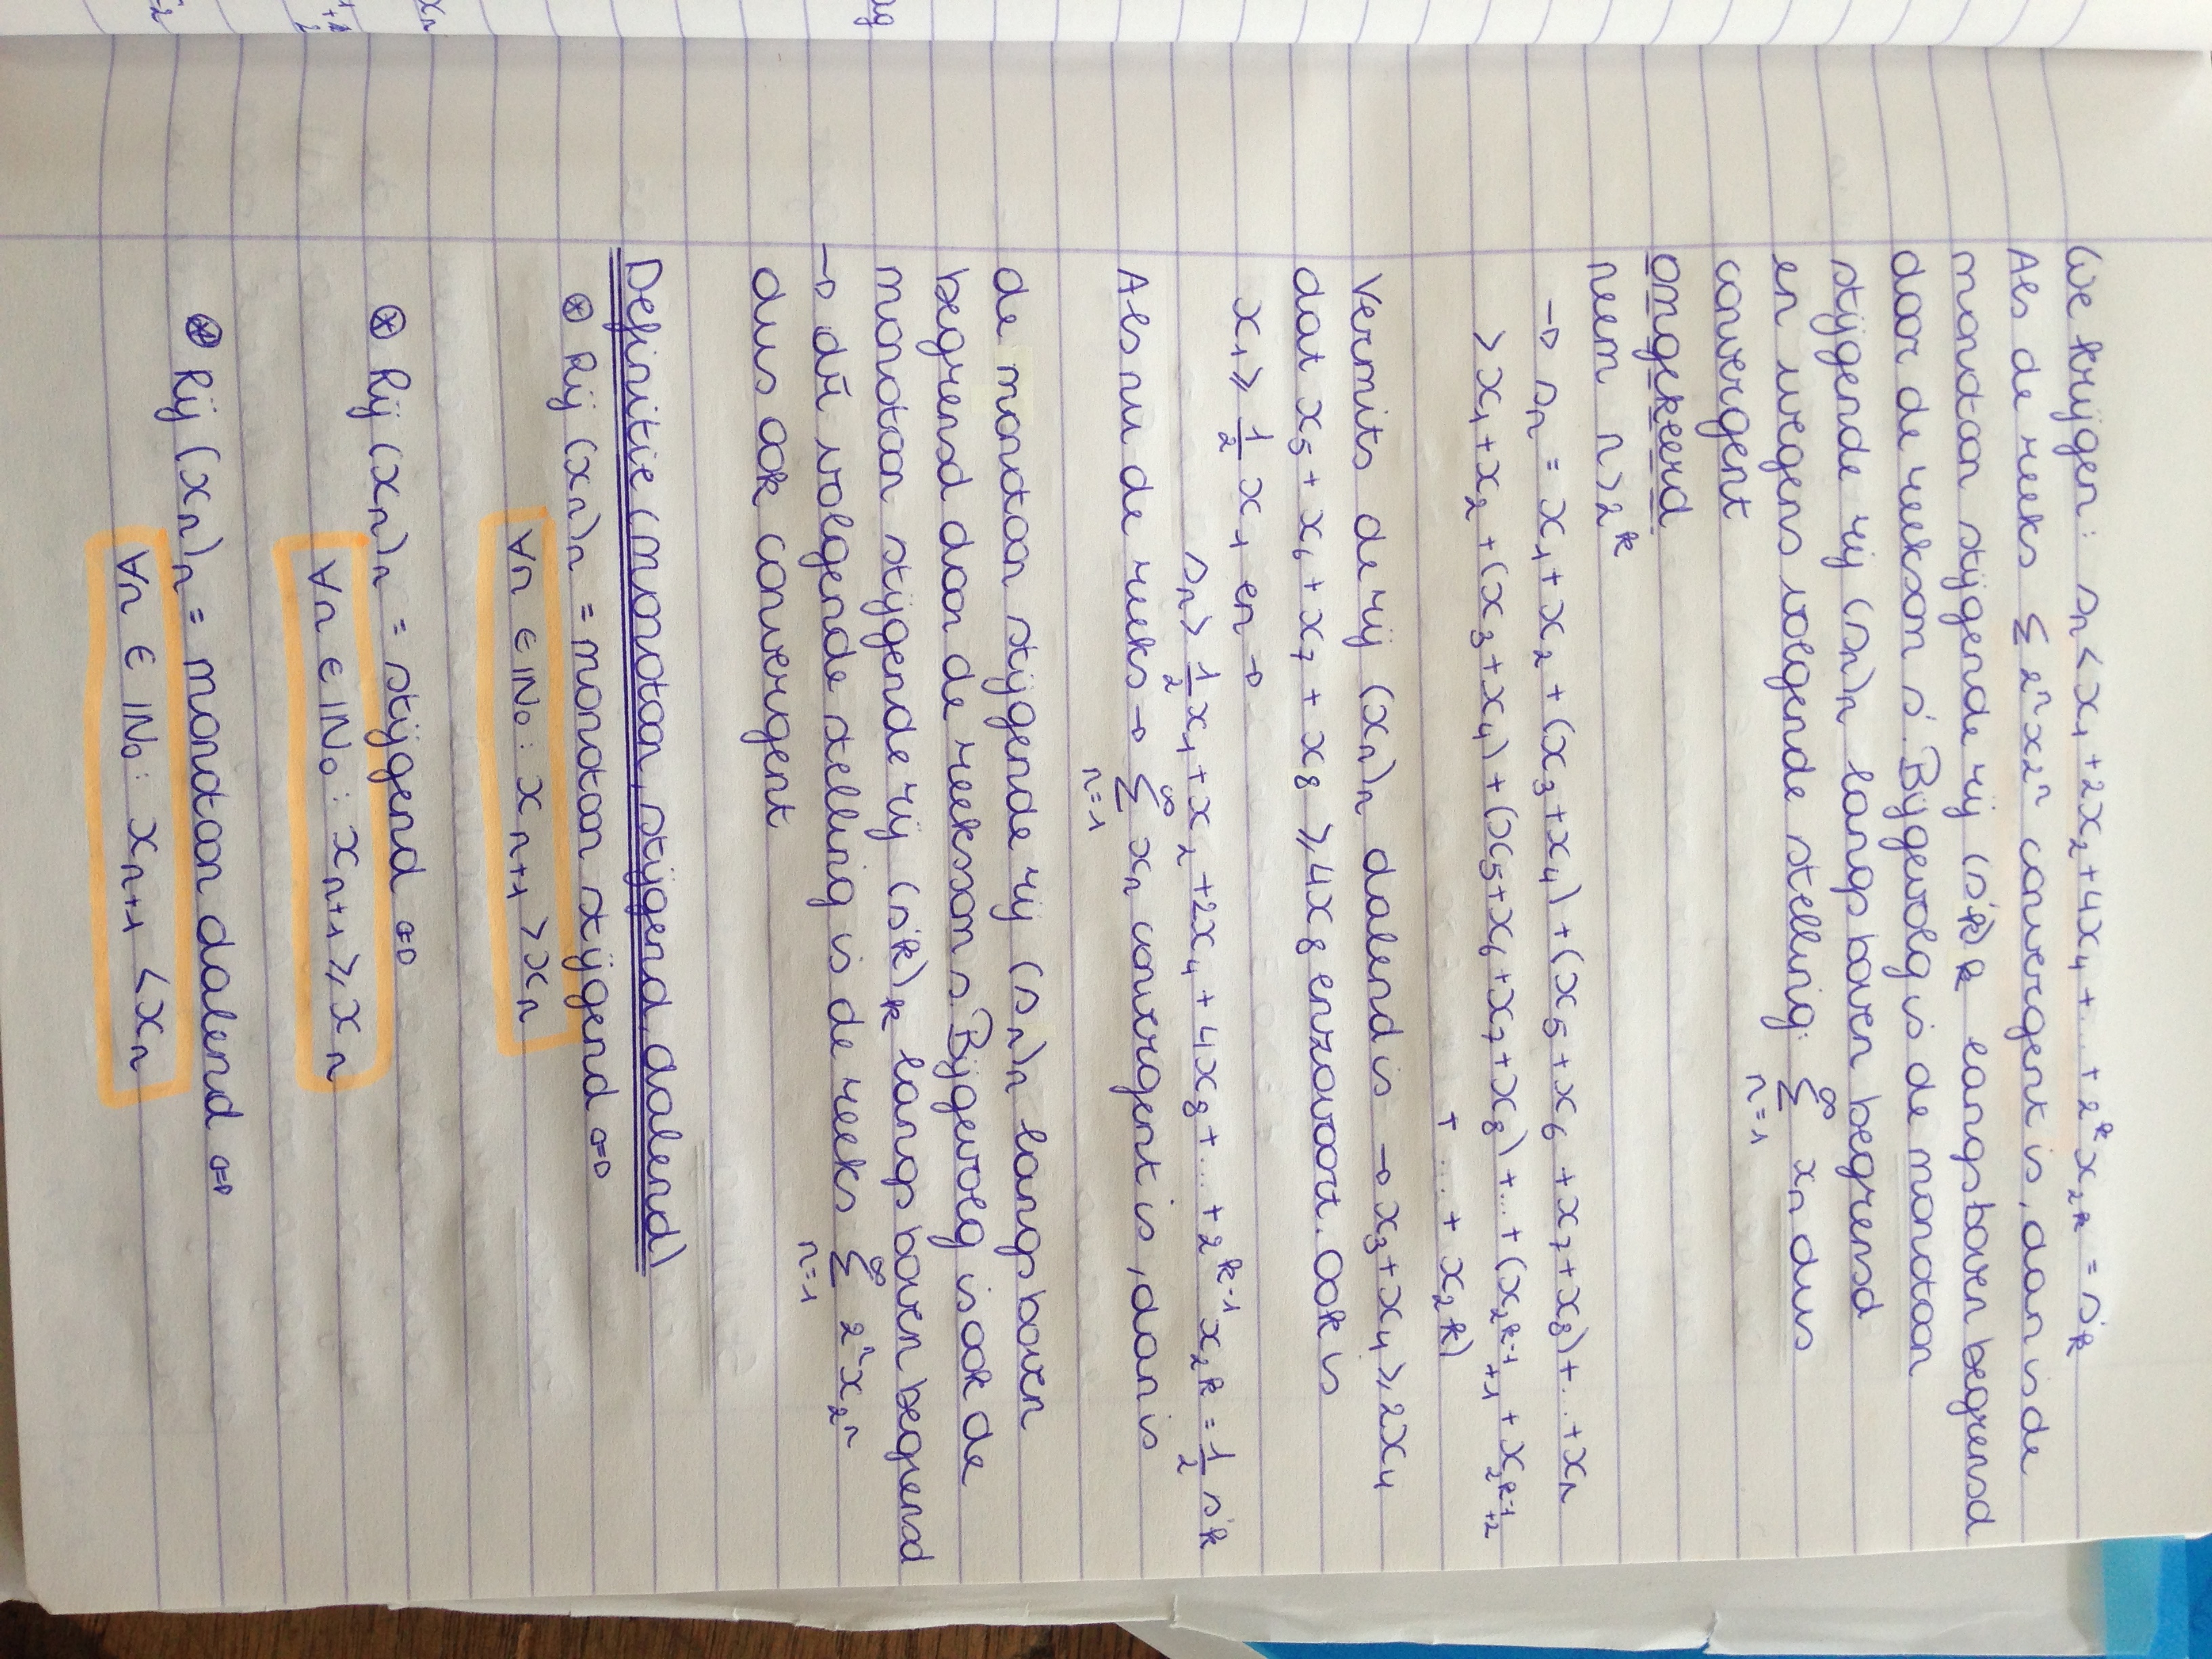 We krijgen: sₙ < x₁ + 2x₂ + 4x₄ + ... + 2ᵏx₂ᵏ = s'ₖ
Als de reeks Σ 2ⁿx₂ⁿ convergent is, dan is de
monotoon stijgende rij (s'ₖ)ₖ langs boven begrensd
door de reekssom s'. Bijgevolg is de monotoon
stijgende rij (sₙ)ₙ langs boven begrensd
en wegens volgende stelling: Σ xₙ dus
∞
n=1
convergent
omgekeerd
neem n > 2ᵏ
→ sₙ = x₁ + x₂ + (x₃ + x₄) + (x₅ + x₆ + x₇ + x₈) + ... + xₙ
> x₁ + x₂ + (x₃ + x₄) + (x₅ + x₆ + x₇ + x₈) + ... + (x₂ᵏ⁻¹₊₁ + x₂ᵏ⁻¹₊₂
+ ... + x₂ᵏ)
Vermits de rij (xₙ)ₙ dalend is → x₃ + x₄ ≥ 2x₄
dat x₅ + x₆ + x₇ + x₈ ≥ 4x₈ enzovoort. Ook is
x₁ ≥ 1/2 x₁ en →
sₙ > 1/2 x₁ + x₂ + 2x₄ + 4x₈ + ... + 2ᵏ⁻¹x₂ᵏ = 1/2 s'ₖ
Als nu de reeks → Σ xₙ convergent is, dan is
∞
n=1
de monotoon stijgende rij (sₙ)ₙ langs boven
begrensd door de reekssom s. Bijgevolg is ook de
monotoon stijgende rij (s'ₖ)ₖ langs boven begrensd
→ dr volgende stelling is de reeks Σ 2ⁿx₂ⁿ
∞
n=1
dus ook convergent
Definitie (monotoon, stijgend, dalend)
⊛ Rij (xₙ)ₙ = monotoon stijgend ⇔
∀n ∈ ℕ₀ : xₙ₊₁ > xₙ
⊛ Rij (xₙ)ₙ = stijgend ⇔
∀n ∈ ℕ₀ : xₙ₊₁ ≥ xₙ
⊛ Rij (xₙ)ₙ = monotoon dalend ⇔
∀n ∈ ℕ₀ : xₙ₊₁ < xₙ